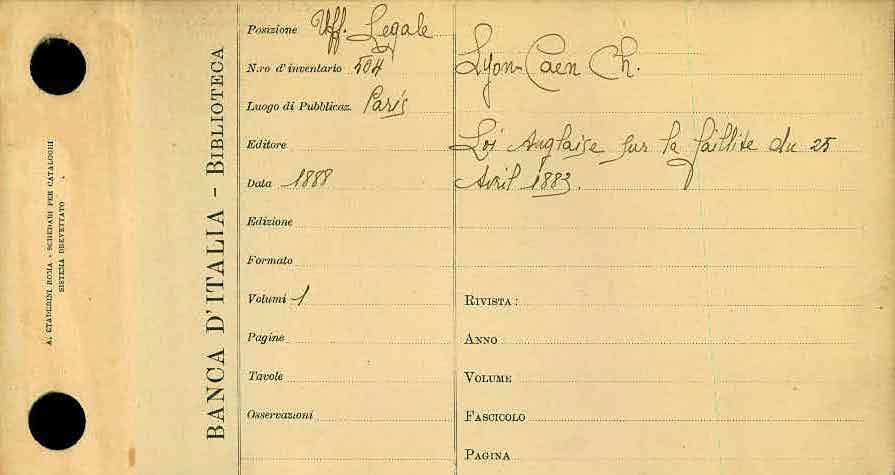 A. STADERINI ROMA - SCHEDARI PER CATALOGHI
SISTEMA BREVETTATO
BANCA D'ITALIA - BIBLIOTECA
Posizione Uff. Legale
N.ro d'inventario 504
Luogo di Pubblicaz. Paris
Editore
Data 1888
Edizione
Formato
Volumi 1
Pagine
Tavole
Osservazioni
Lyon-Caen Ch.
Loi Anglaise sur la faillite du 25
Avril 1883.
RIVISTA:
ANNO
VOLUME
FASCICOLO
PAGINA